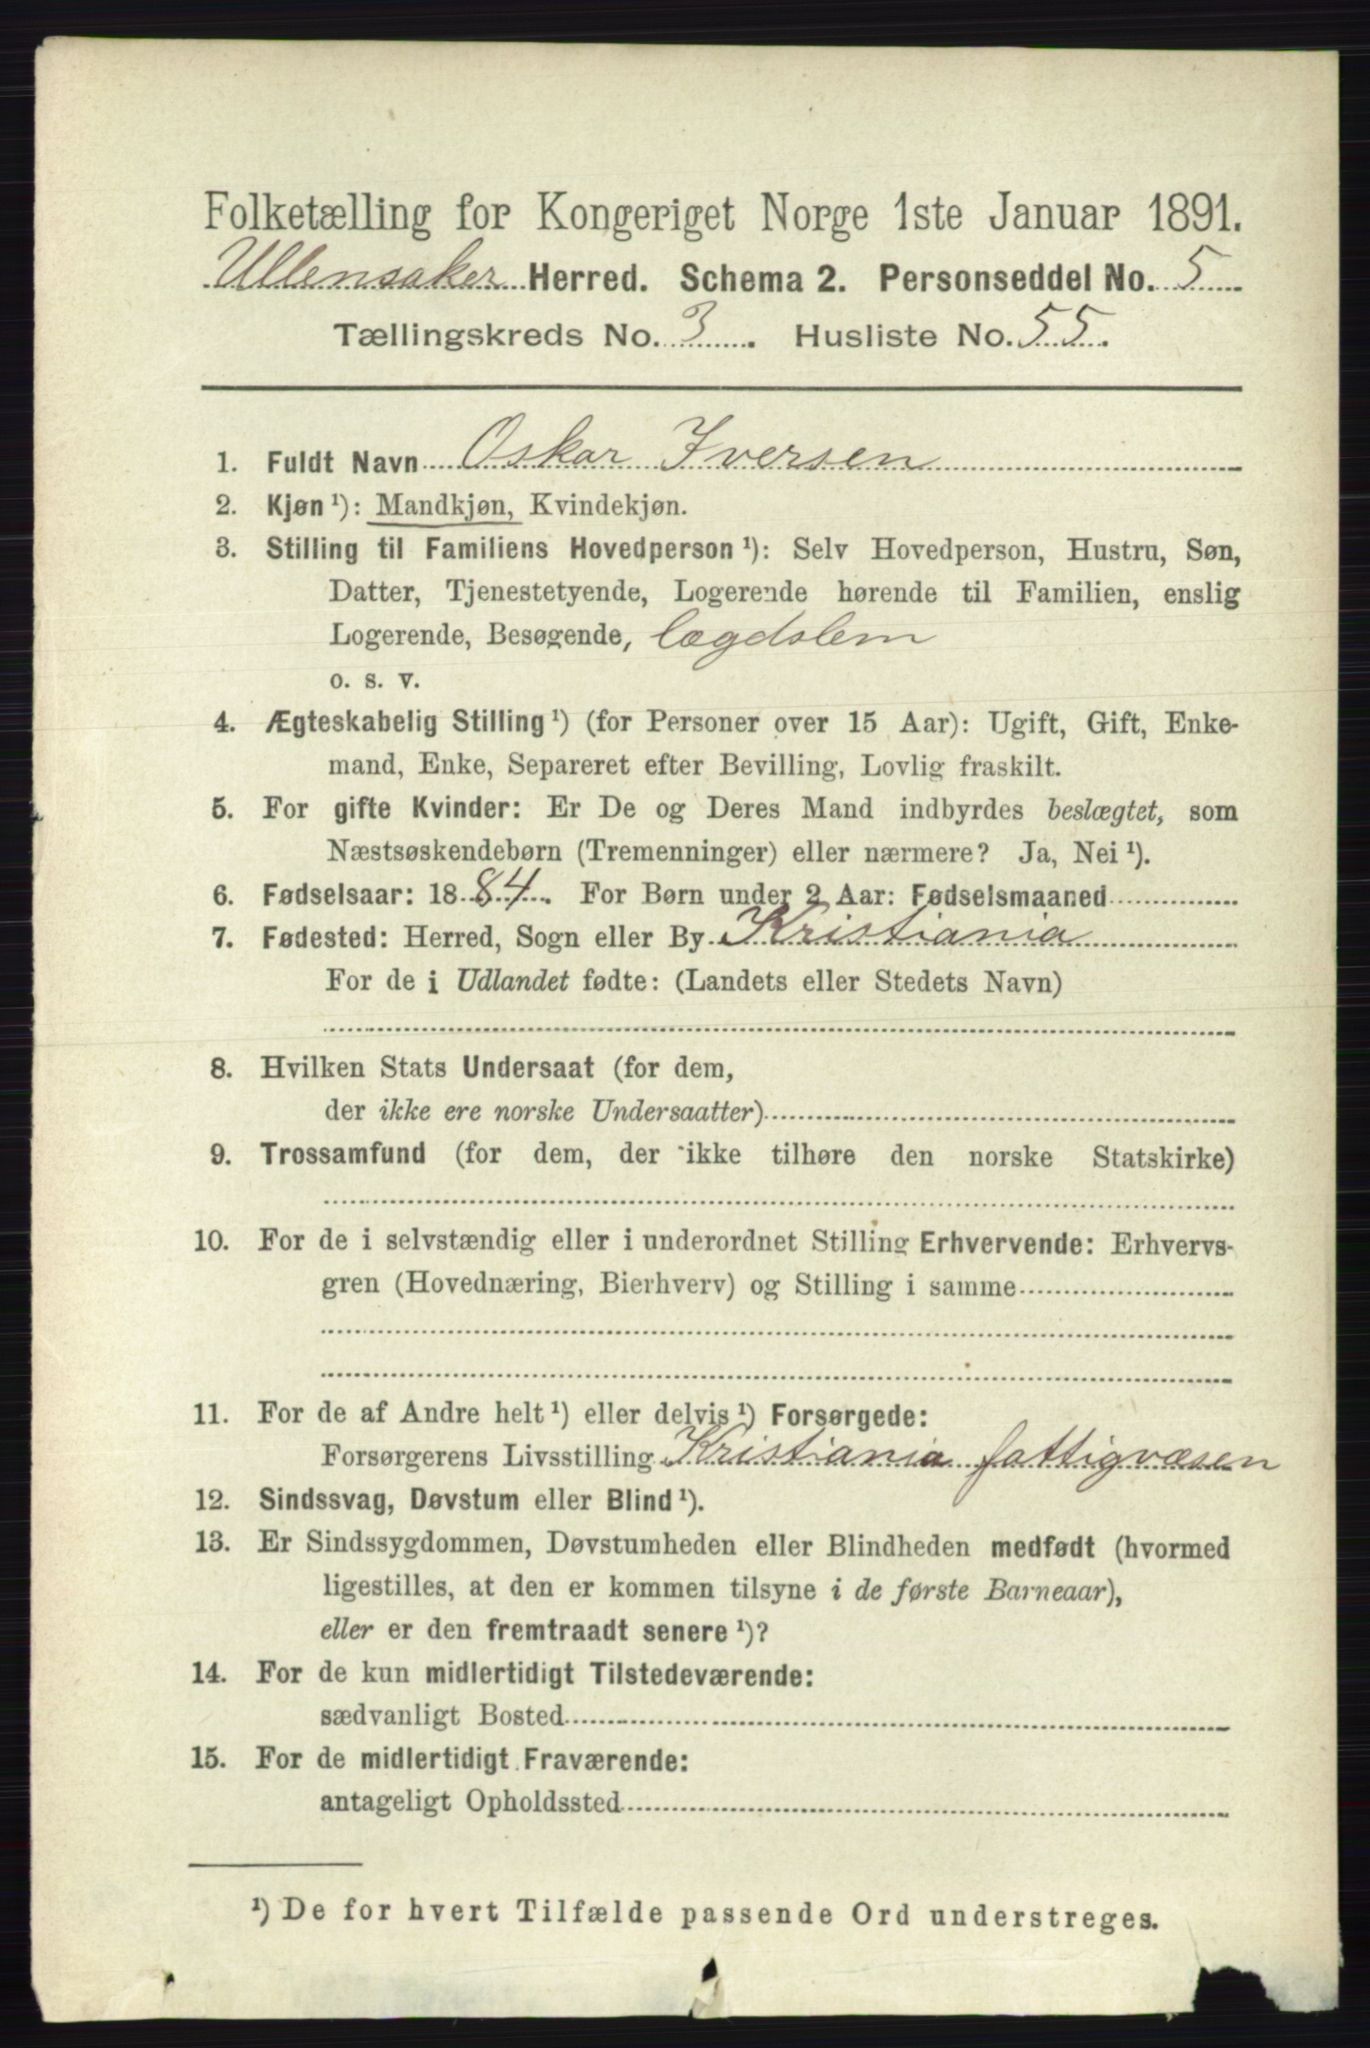 Folketælling for Kongeriget Norge 1ste Januar 1891.
Ullensaker Herred. Schema 2. Personseddel No. 5
Tællingskreds No. 3. Husliste No. 55.
1. Fuldt Navn Oskar Iversen
2. Kjøn ¹): Mandkjøn, Kvindekjøn.
3. Stilling til Familiens Hovedperson ¹): Selv Hovedperson, Hustru, Søn,
Datter, Tjenestetyende, Logerende hørende til Familien, enslig
Logerende, Besøgende, lægdslem
o. s. v.
4. Ægteskabelig Stilling ¹) (for Personer over 15 Aar): Ugift, Gift, Enke-
mand, Enke, Separeret efter Bevilling, Lovlig fraskilt.
5. For gifte Kvinder: Er De og Deres Mand indbyrdes beslægtet, som
Næstsøskendebørn (Tremenninger) eller nærmere? Ja, Nei ¹).
6. Fødselsaar: 1884. For Børn under 2 Aar: Fødselsmaaned
7. Fødested: Herred, Sogn eller By Kristiania
For de i Udlandet fødte: (Landets eller Stedets Navn)
8. Hvilken Stats Undersaat (for dem,
der ikke ere norske Undersaatter)
9. Trossamfund (for dem, der ikke tilhøre den norske Statskirke)
10. For de i selvstændig eller i underordnet Stilling Erhvervende: Erhvervs-
gren (Hovednæring, Bierhverv) og Stilling i samme
11. For de af Andre helt ¹) eller delvis ¹) Forsørgede:
Forsørgerens Livsstilling Kristiania fattigvæsen
12. Sindssvag, Døvstum eller Blind ¹).
13. Er Sindssygdommen, Døvstumheden eller Blindheden medfødt (hvormed
ligestilles, at den er kommen tilsyne i de første Barneaar),
eller er den fremtraadt senere ¹)?
14. For de kun midlertidigt Tilstedeværende:
sædvanligt Bosted
15. For de midlertidigt Fraværende:
antageligt Opholdssted
¹) De for hvert Tilfælde passende Ord understreges.